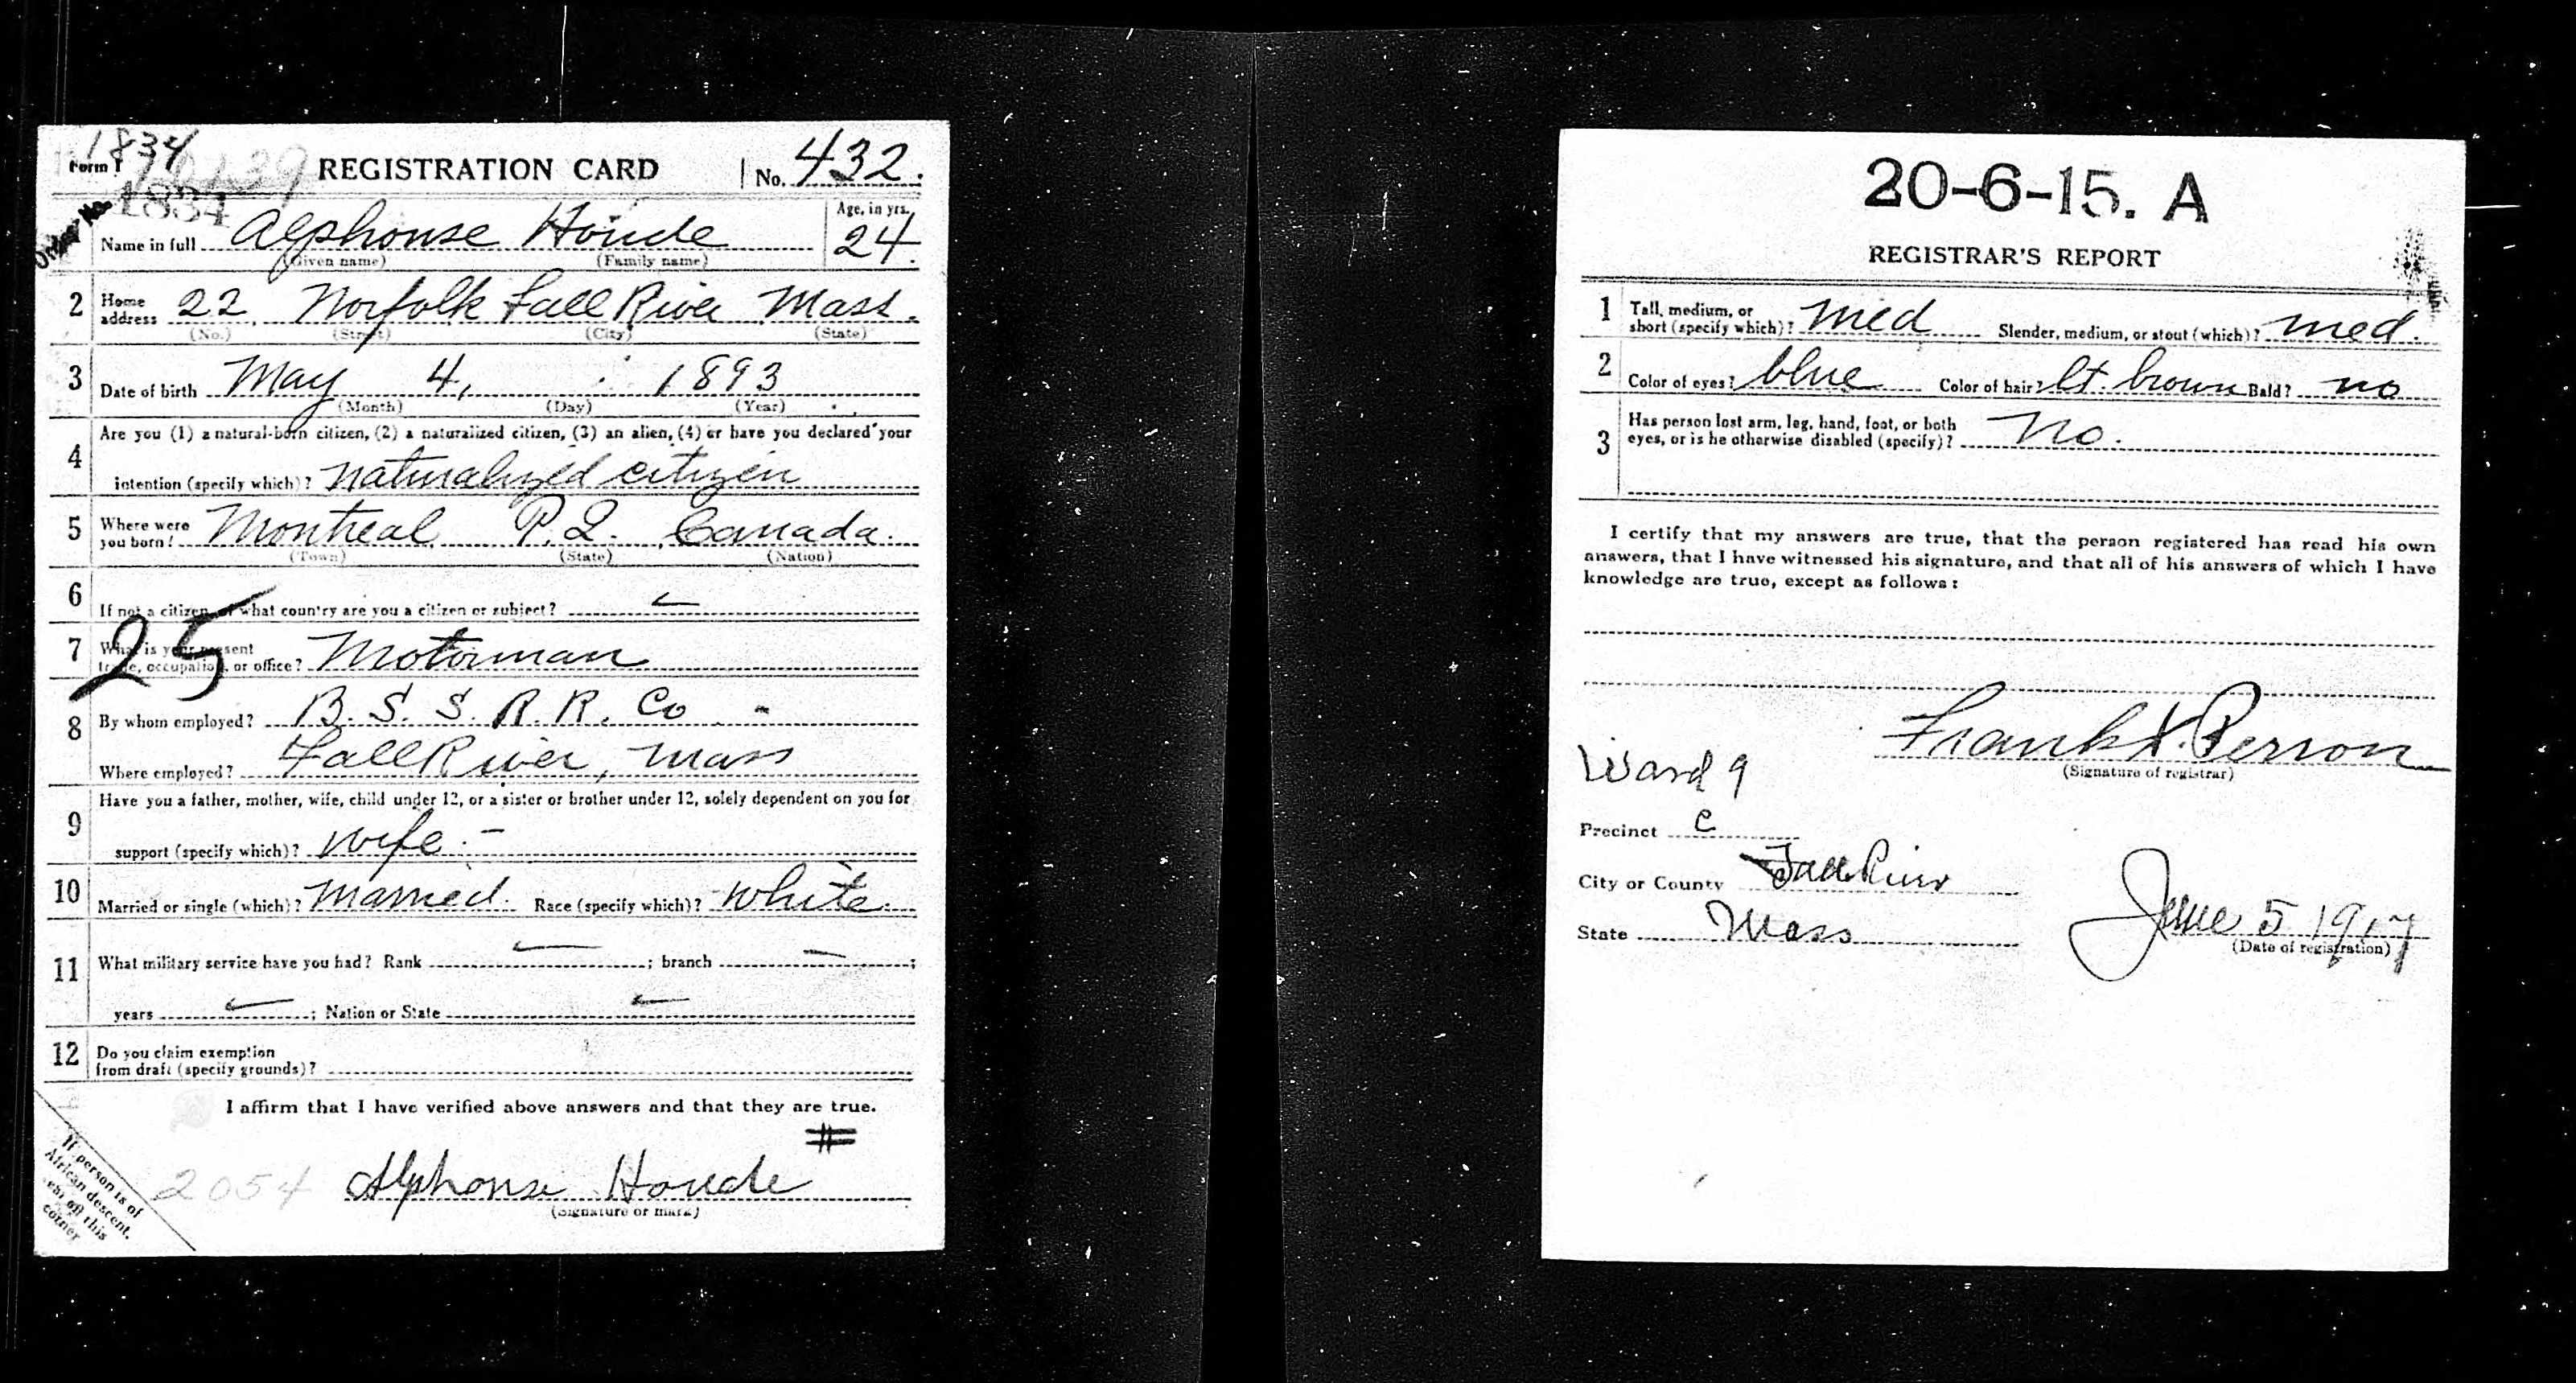 1834
Form 1 REGISTRATION CARD No. 432.
1834
Order No.
Name in full Alphonse Houde Age, in yrs. 24.
(Given name) (Family name)
2 Home address 22 Norfolk Fall River Mass.
(No.) (Street) (City) (State)
3 Date of birth May 4, 1893
(Month) (Day) (Year)
4 Are you (1) a natural-born citizen, (2) a naturalized citizen, (3) an alien, (4) or have you declared your
intention (specify which)? naturalized citizen
5 Where were you born? Montreal P.Q. Canada.
(Town) (State) (Nation)
6 If not a citizen, of what country are you a citizen or subject?
25
7 What is your present trade, occupation, or office? Motorman
8 By whom employed? B. S. S. R. R. Co.
Where employed? Fall River, Mass
9 Have you a father, mother, wife, child under 12, or a sister or brother under 12, solely dependent on you for
support (specify which)? wife -
10 Married or single (which)? Married. Race (specify which)? White.
11 What military service have you had? Rank — ; branch — ;
years — ; Nation or State —
12 Do you claim exemption
from draft (specify grounds)?
I affirm that I have verified above answers and that they are true.
#
2054 Alphonse Houde
(Signature or mark)
If person is of
African descent,
tear off this
corner
20-6-15. A
REGISTRAR'S REPORT
1 Tall, medium, or
short (specify which)? Med Slender, medium, or stout (which)? med.
2 Color of eyes? blue Color of hair? lt. brown Bald? no
3 Has person lost arm, leg, hand, foot, or both
eyes, or is he otherwise disabled (specify)? No.
I certify that my answers are true, that the person registered has read his own
answers, that I have witnessed his signature, and that all of his answers of which I have
knowledge are true, except as follows:
Frank X. Perron
(Signature of registrar)
Ward 9
Precinct C
City or County Fall River
State Mass
June 5 1917
(Date of registration)